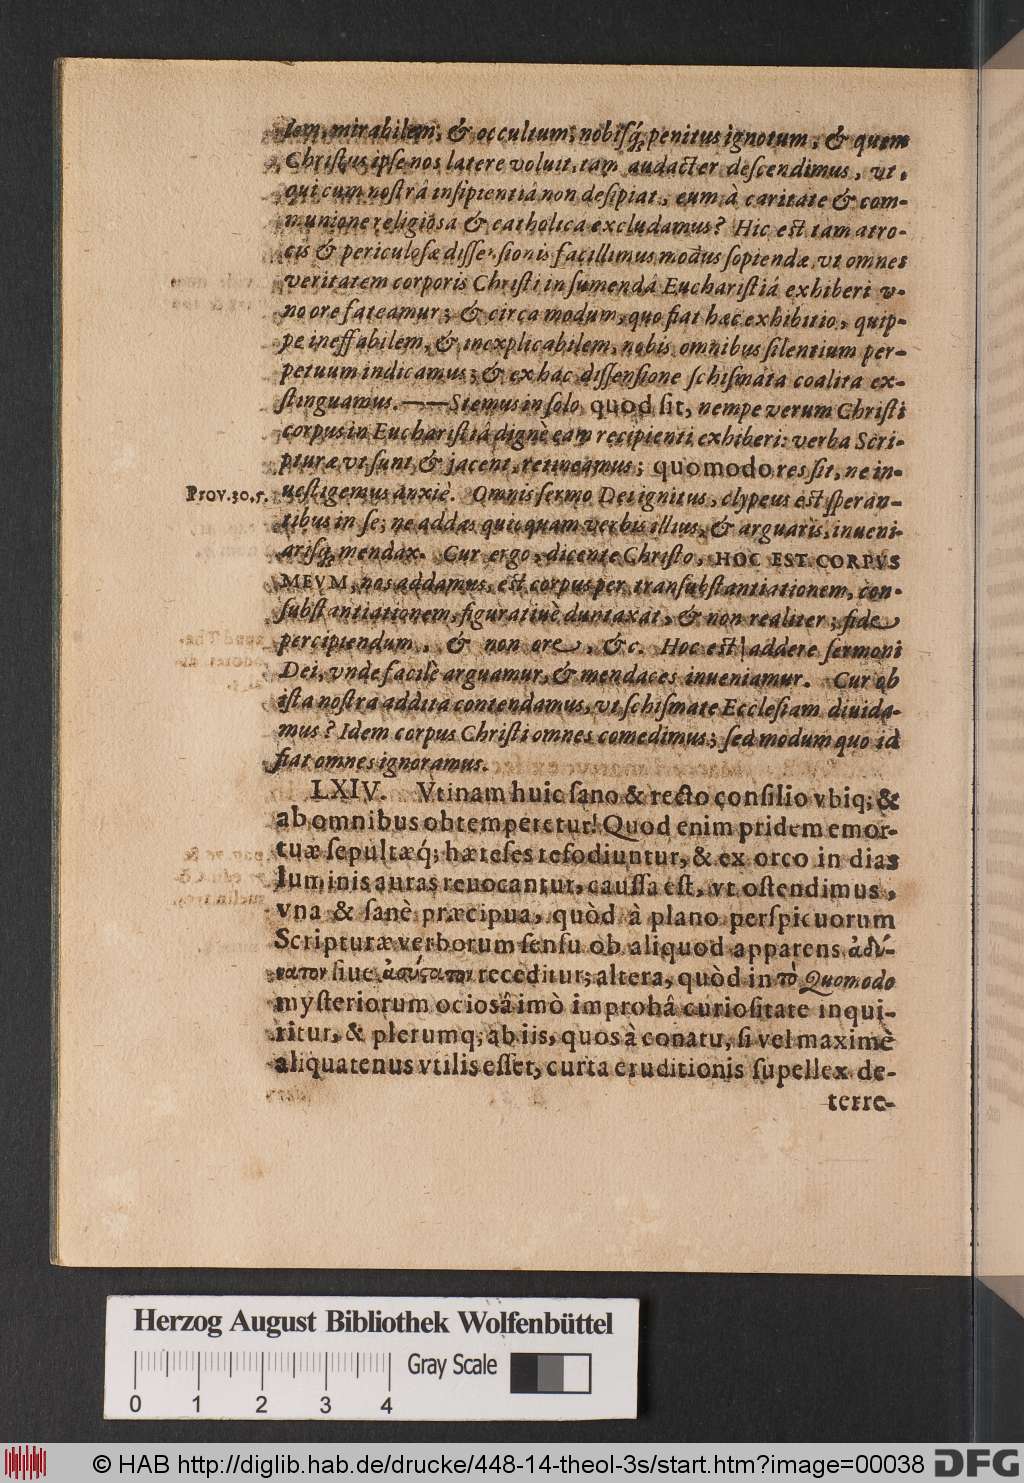 lem, mirabilem, & occultum, nobisq́; penitus ignotum, & quem
Christus ipse nos latere voluit, tam audacter descendimus, vt,
qui cum nostrá insipientiá non desipiat, eum à caritate & com-
munione religiosa & catholica excludamus? Hic est tam atro-
cis & periculosæ dissensionis facillimus modus sopiendæ, vt omnes
veritatem corporis Christi in sumendá Eucharistiá exhiberi v-
no ore fateamur; & circa modum, quo fiat hæc exhibitio, quip-
pe ineffabilem, & inexplicabilem, nobis omnibus silentium per-
petuum indicamus; & ex hac dissensione schismata coalita ex-
stinguamus.——Stemus in solo quod sit, nempe verum Christi
corpus in Eucharistiá dignè eam recipienti exhiberi: verba Scri-
pturæ vt sunt & jacent, retineamus; quomodo res sit, ne in-
Prov. 30, 5. uestigemus anxiè. Omnis sermo Dei ignitus, clypeus est speran-
tibus in se; ne addas quicquam verbis illius, & arguaris, inueni-
arisq́; mendax. Cur ergo, dicente Christo, HOC EST CORPVS
MEVM, nos addamus, est corpus per transubstantiationem, con-
substantiationem, figuratiuè duntaxat, & non realiter; fide
percipiendum, & non ore, &c. Hoc est addere sermoni
Dei, vnde facilè arguamur, & mendaces inueniamur. Cur ob
ista nostra addita contendamus, vt schismate Ecclesiam diuida-
mus? Idem corpus Christi omnes comedimus; sed modum quo id
fiat omnes ignoramus.
LXIV. Vtinam huic sano & recto consilio vbiq; &
ab omnibus obtemperetur! Quod enim pridem emor-
tuæ sepultæq́; hæreses refodiuntur, & ex orco in dias
luminis auras reuocantur, caussa est, vt ostendimus,
vna & sanè præcipua, quòd à plano perspicuorum
Scripturæ verborum sensu ob aliquod apparens ἀδύ-
νατον siue ἀσύστατον receditur; altera, quòd in τὸ Quomodo
mysteriorum ociosâ imò improbâ curiositate inqui-
ritur, & plerumq; ab iis, quos à conatu, si vel maximè
aliquatenus vtilis esset, curta eruditionis supellex de-
terre-
Herzog August Bibliothek Wolfenbüttel
Gray Scale
0 1 2 3 4
© HAB http://diglib.hab.de/drucke/448-14-theol-3s/start.htm?image=00038
DFG